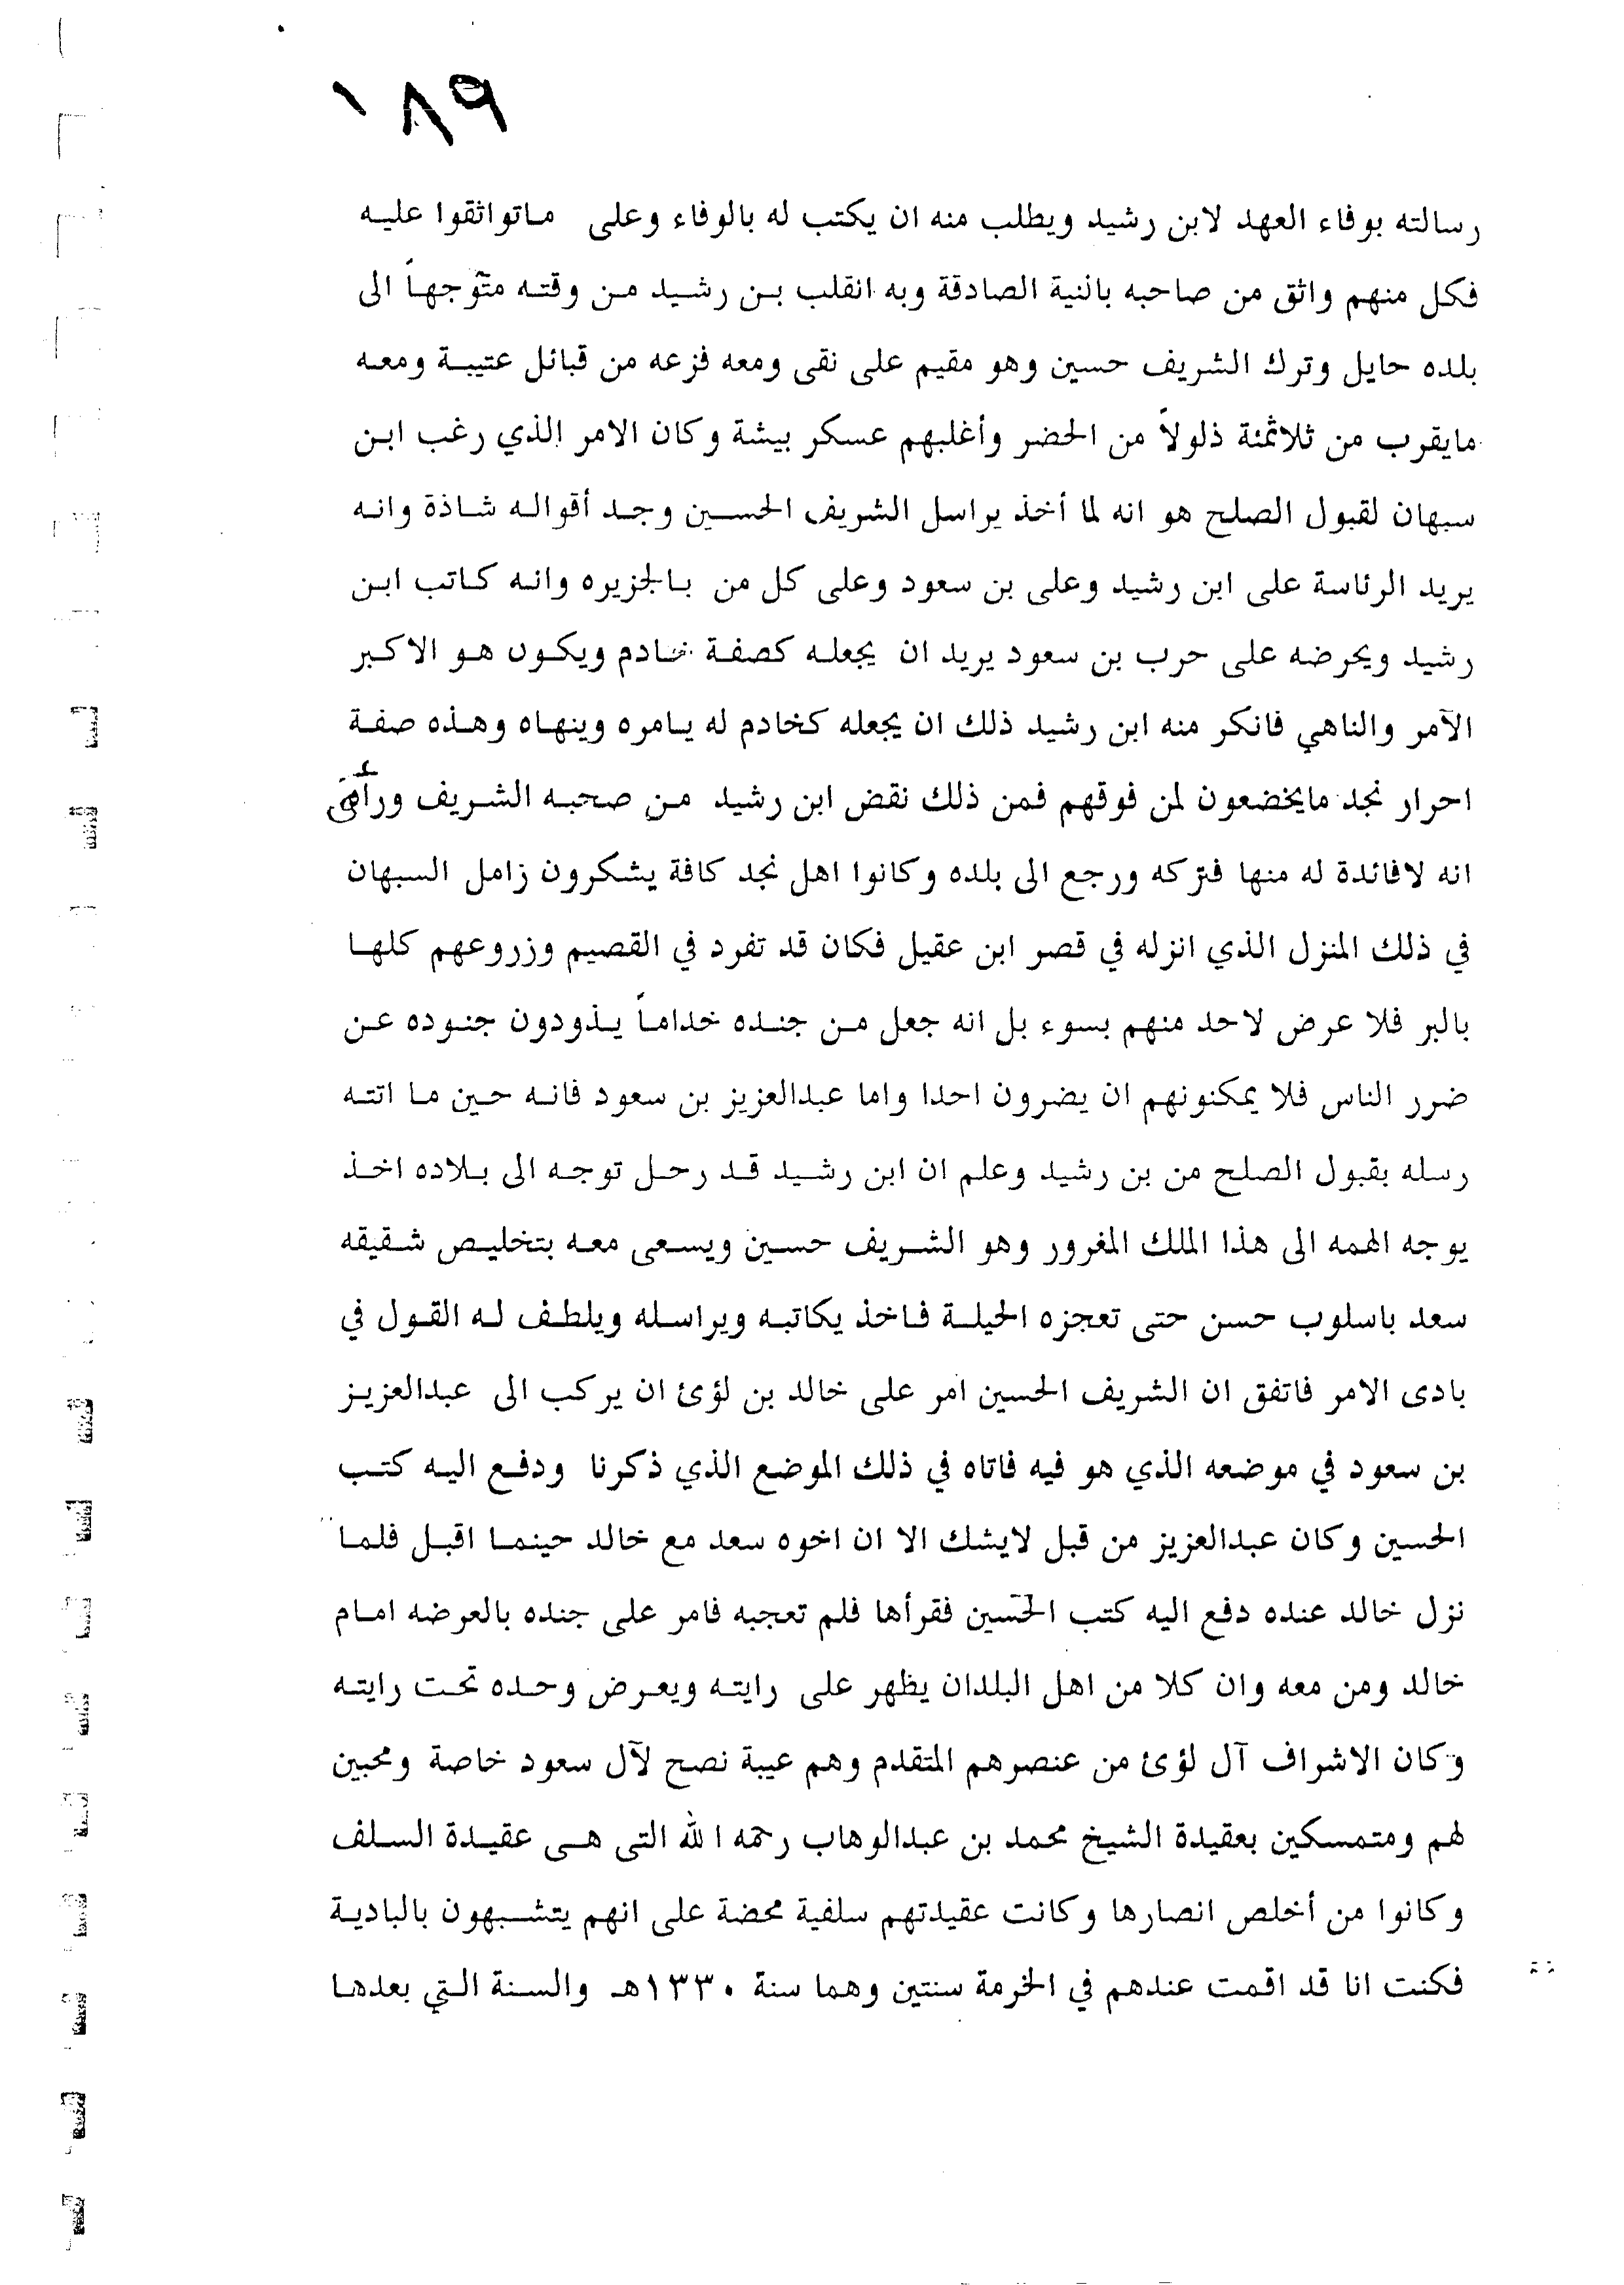 ١٨٩
رسالته بوفاء العهد لابن رشيد ويطلب منه ان يكتب له بالوفاء وعلى ماتواثقوا عليه
فكل منهم واثق من صاحبه بالنية الصادقة وبه انقلب بن رشيد من وقته متوجهاً الى
بلده حايل وترك الشريف حسين وهو مقيم على نقى ومعه فزعه من قبائل عتيبة ومعه
مايقرب من ثلاثمئة ذلولاً من الحضر وأغلبهم عسكر بيشة وكان الامر الذي رغب ابن
سبهان لقبول الصلح هو انه لما أخذ يراسل الشريف الحسين وجد أقواله شاذة وانه
يريد الرئاسة على ابن رشيد وعلى بن سعود وعلى كل من بالجزيره وانه كاتب ابن
رشيد ويحرضه على حرب بن سعود يريد ان يجعله كصفة خادم ويكون هو الاكبر
الآمر والناهي فانكر منه ابن رشيد ذلك ان يجعله كخادم له يامره وينهاه وهذه صفة
احرار نجد مايخضعون لمن فوقهم فمن ذلك نقض ابن رشيد من صحبه الشريف ورأى
انه لافائدة له منها فتركه ورجع الى بلده وكانوا اهل نجد كافة يشكرون زامل السبهان
في ذلك المنزل الذي انزله في قصر ابن عقيل فكان قد تفرد في القصيم وزروعهم كلها
بالبر فلا عرض لاحد منهم بسوء بل انه جعل من جنده خداماً يذودون جنوده عن
ضرر الناس فلا يمكنونهم ان يضرون احدا واما عبدالعزيز بن سعود فانه حين ما اتته
رسله بقبول الصلح من بن رشيد وعلم ان ابن رشيد قد رحل توجه الى بلاده اخذ
يوجه الهمه الى هذا الملك المغرور وهو الشريف حسين ويسعى معه بتخليص شقيقه
سعد باسلوب حسن حتى تعجزه الحيلة فاخذ يكاتبه ويراسله ويلطف له القول في
بادى الامر فاتفق ان الشريف الحسين امر على خالد بن لؤئ ان يركب الى عبدالعزيز
بن سعود في موضعه الذي هو فيه فاتاه في ذلك الموضع الذي ذكرنا ودفع اليه كتب
الحسين وكان عبدالعزيز من قبل لايشك الا ان اخوه سعد مع خالد حينما اقبل فلما
نزل خالد عنده دفع اليه كتب الحسين فقرأها فلم تعجبه فامر على جنده بالعرضه امام
خالد ومن معه وان كلا من اهل البلدان يظهر على رايته ويعرض وحده تحت رايته
وكان الاشراف آل لؤئ من عنصرهم المتقدم وهم عيبة نصح لآل سعود خاصة ومحبين
لهم ومتمسكين بعقيدة الشيخ محمد بن عبدالوهاب رحمه الله التى هى عقيدة السلف
وكانوا من أخلص انصارها وكانت عقيدتهم سلفية محضة على انهم يتشبهون بالبادية
فكنت انا قد اقمت عندهم في الخرمة سنتين وهما سنة ١٣٣٠هـ والسنة التي بعدها